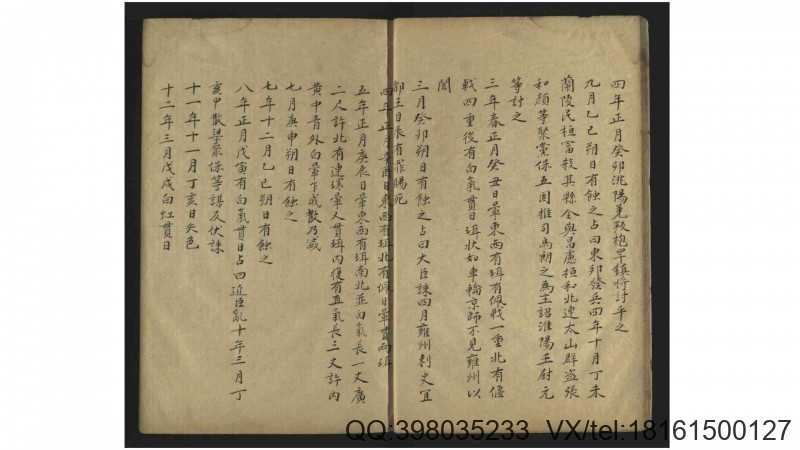 四年正月癸卯洮陽羌破枹罕鎮將討平之
九月乙巳朔日有蝕之占曰東邦發兵四年十月丁未
蘭陵民桓富殺其縣令與昌慮桓和北連太山群盜張
和顏等聚黨保五固推司馬朗之為主詔淮陽王尉元
等討之
三年春正月癸丑日暈東西有珥有佩戟一重北有偃
戟四重後有白氣貫日珥狀如車輪京師不見雍州以
聞
三月癸卯朔日有蝕之占曰大臣誅四月雍州刺史宜
都王目辰有罪賜死
四年正月癸酉日東西有珥北有佩日暈貫兩珥
五年正月庚辰日暈東西有珥南北並白氣長一丈廣
二人許北有連環暈又貫珥內復有直氣長三丈許內
黃中青外白暈乍成散乃滅
七月庚申朔日有蝕之
七年十二月乙巳朔日有蝕之
八年正月戊寅有白氣貫日占曰近臣亂十年三月丁
亥中散梁眾保等謀反伏誅
十一年十一月丁亥日失色
十二年三月戊戌白虹貫日
QQ:398035233 VX/tel:18161500127